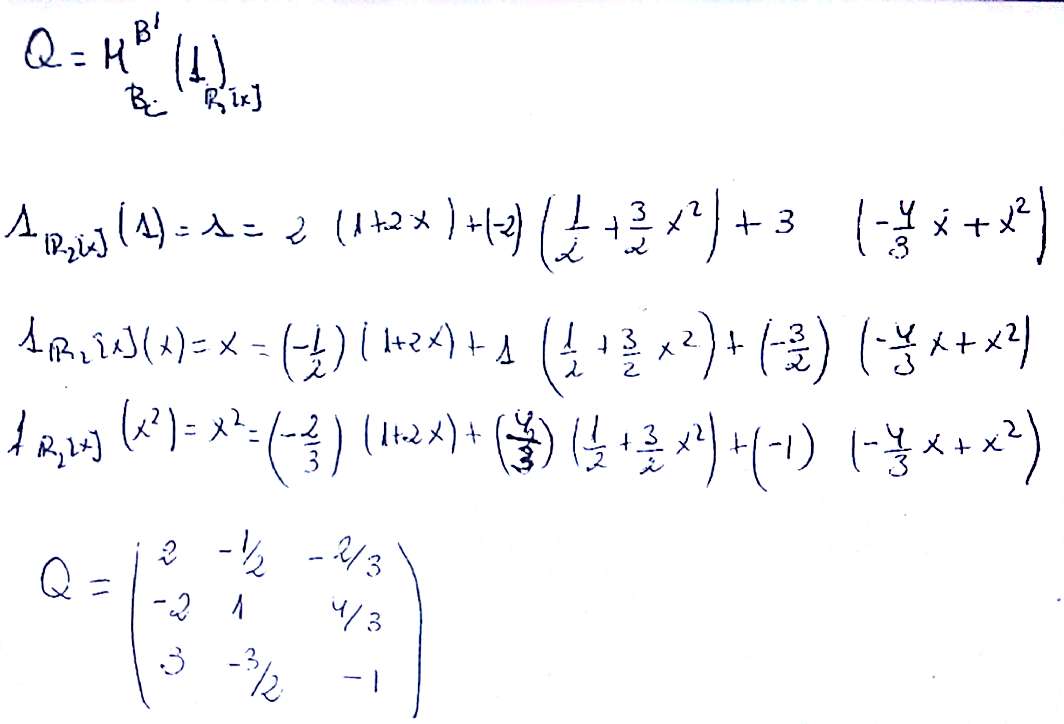 Q = M^{B'}_{B_c} (1)_{R_2[x]}
1_{R_2[x]} (1) = 1 = 2 (1+2x) + (-2) (1/2 + 3/2 x^2) + 3 (-4/3 x + x^2)
1_{R_2[x]} (x) = x = (-1/2) (1+2x) + 1 (1/2 + 3/2 x^2) + (-3/2) (-4/3 x + x^2)
1_{R_2[x]} (x^2) = x^2 = (-2/3) (1+2x) + (4/3) (1/2 + 3/2 x^2) + (-1) (-4/3 x + x^2)
Q = ( 2 -1/2 -2/3
-2 1 4/3
3 -3/2 -1 )